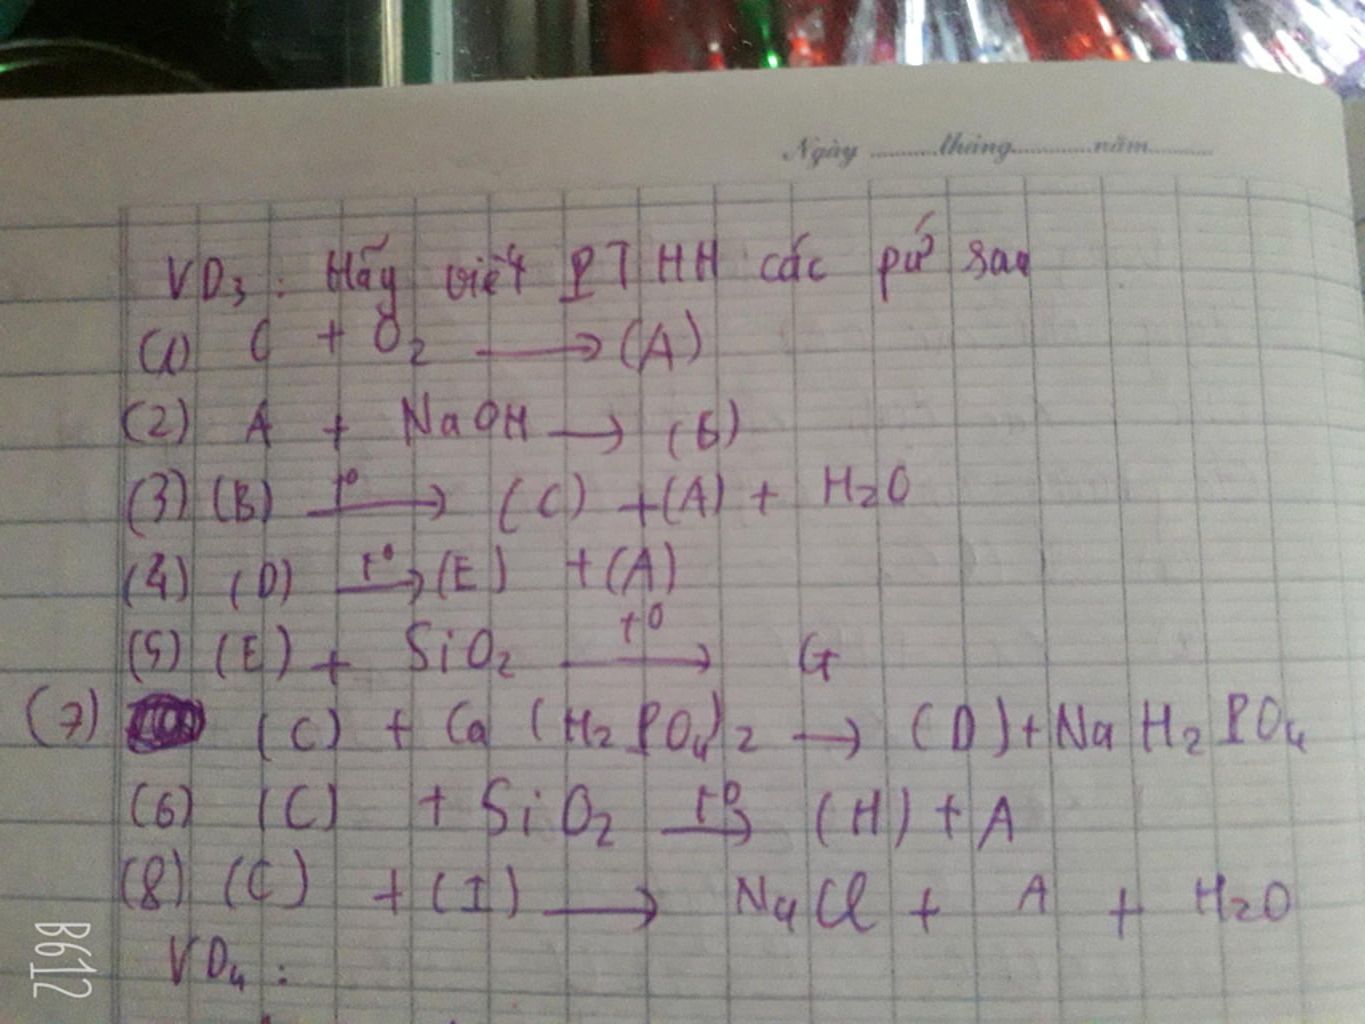 Ngày ............tháng............năm............
VD3 : Hãy viết PTHH các pứ sau
(1) C + O2 → (A)
(2) A + NaOH → (B)
(3) (B) t° → (C) + (A) + H2O
(4) (D) t° → (E) + (A)
(5) (E) + SiO2 t° → G
(7) (C) + Ca (H2PO4)2 → (D) + NaH2PO4
(6) (C) + SiO2 t° → (H) + A
(8) (C) + (I) → NaCl + A + H2O
VD4 :
B612